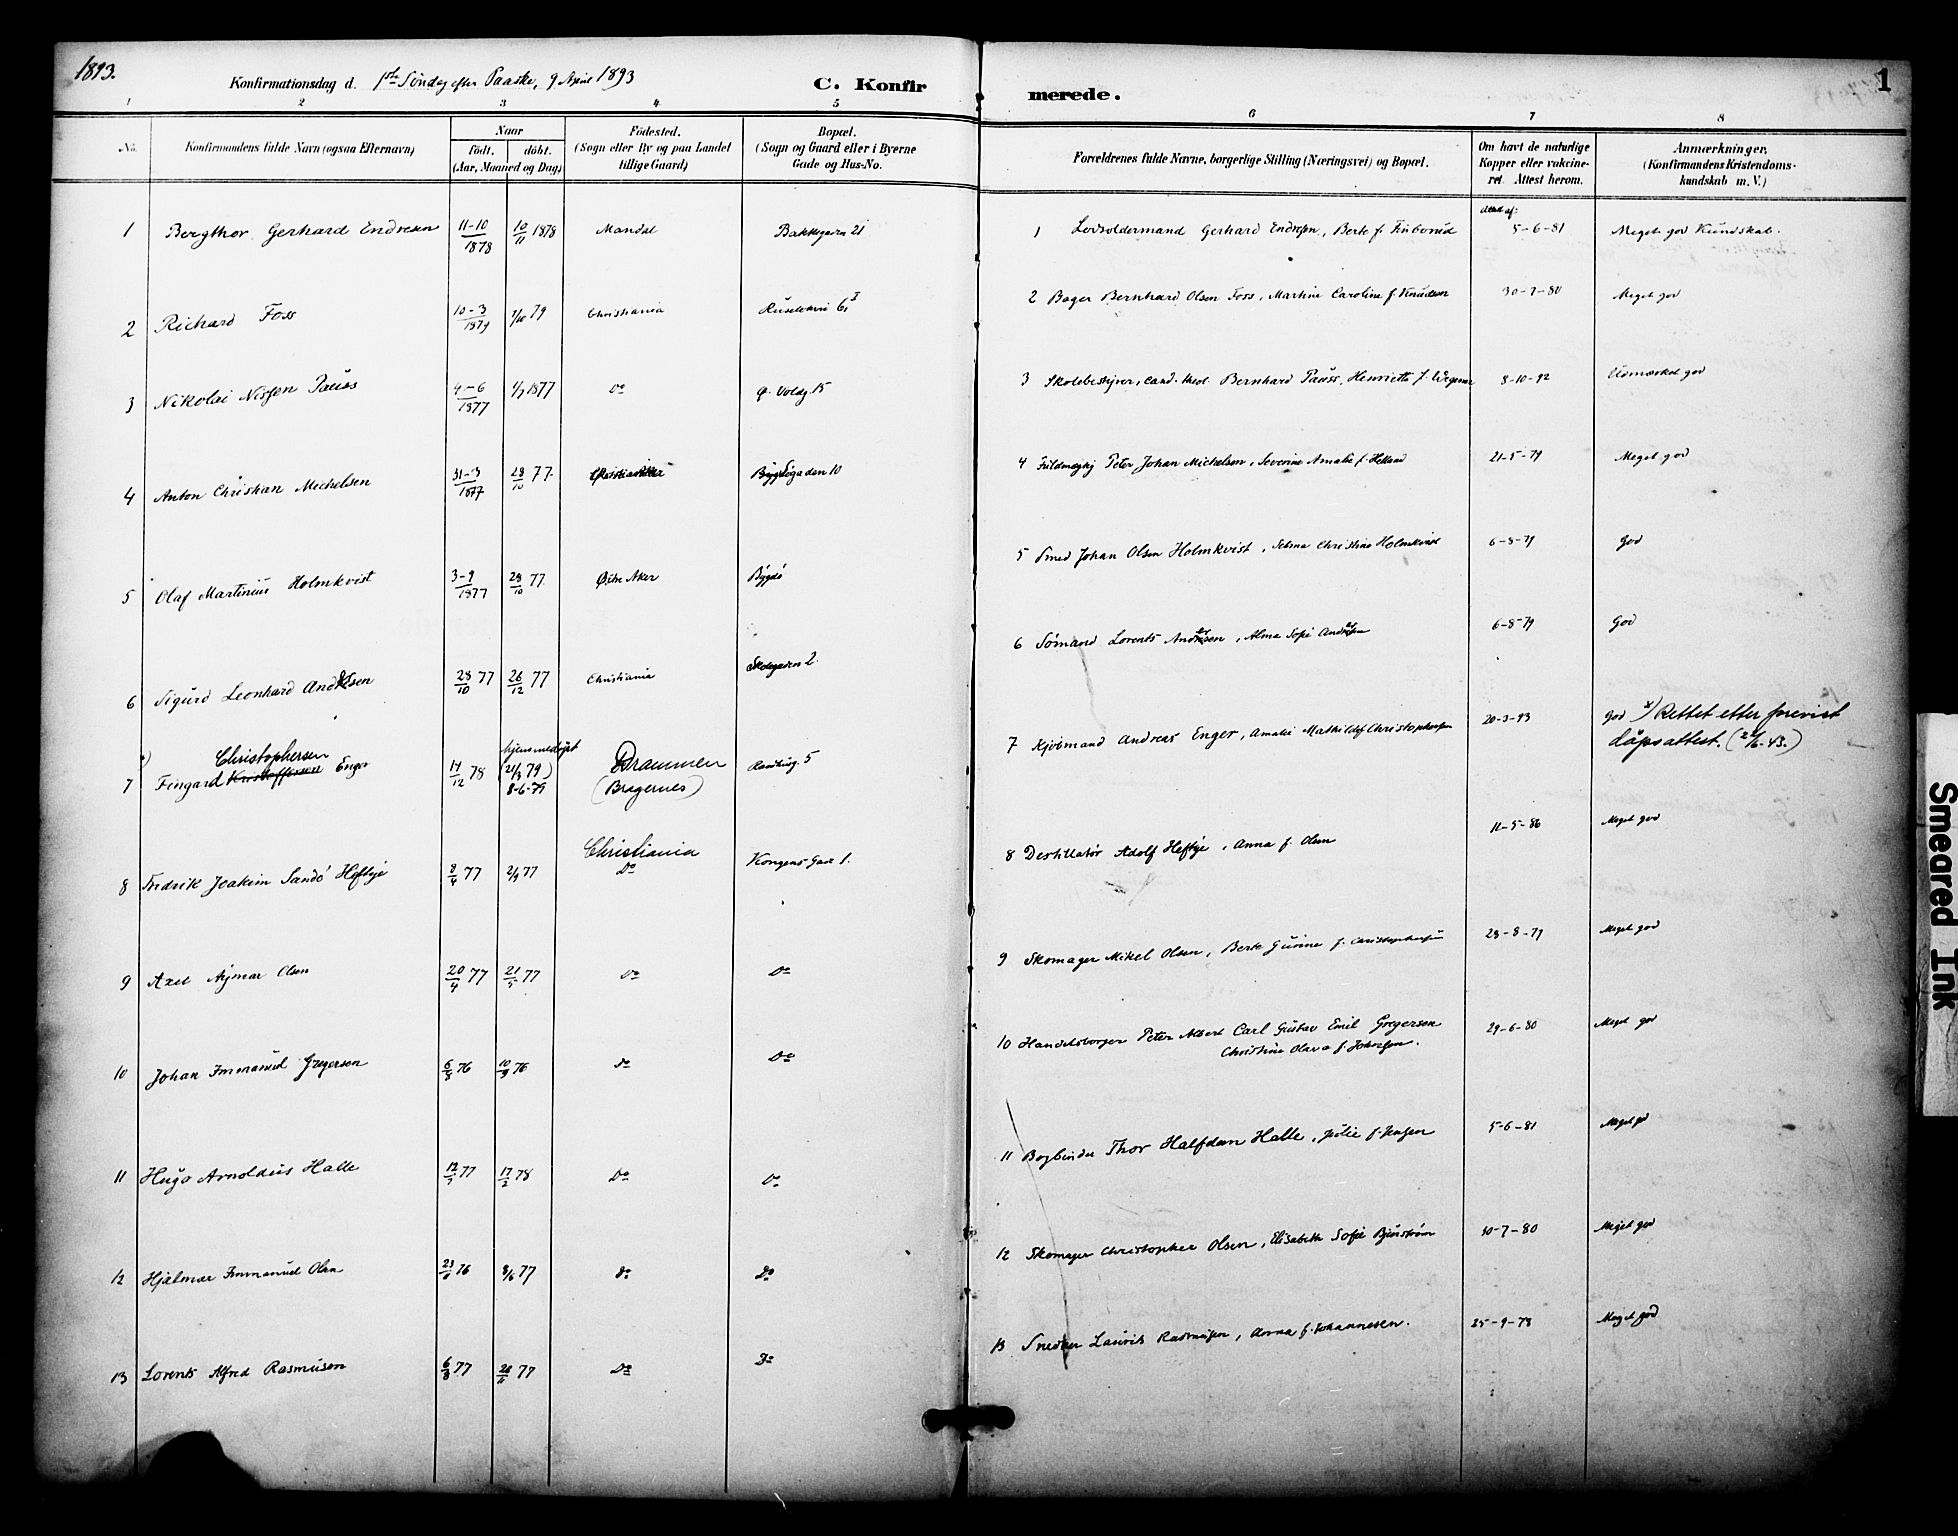 1893.
Konfirmationsdag d. 1ste Søndag efter Paaske, 9 April 1893
C. Konfirmerede.
1
1 2 3 4 5 6 7 8
No. Konfirmandens fulde Navn (ogsaa Efternavn) Naar födt. döbt. (Aar, Maaned og Dag) Födested. (Sogn eller By og paa Landet tillige Gaard) Bopæl. (Sogn og Gaard eller i Byerne Gade og Hus-No. Forældrenes fulde Navne, borgerlige Stilling (Næringsvei) og Bopæl. Om havt de naturlige Kopper eller vakcineret. Attest herom. Anmærkninger. (Konfirmandens Kristendomskundskab m. V.)
1 Bergthor Gerhard Endresen 11-10 1878 10/11 1878 Mandal Bakkegaden 21 1 Lodsoldermand Gerhard Endresen, Berte f. 5-6-81 Meget god Kundskab.
2 Richard Foss 10-3 1879 79 Christiania 6 I 2 Bager Bernhard Olsen Foss, Martine Caroline f. Knudsen 30-7-80 Meget god
3 Nikolai Nissen Pauss 4-6 1877 1/7 1877 Do Ø. Voldg. 15 3 Skolebestyrer, cand. theol. Bernhard Pauss, Henriette f. Wegener 8-10-92 Udmærket god
4 Anton Christian Michelsen 31-3 1877 28/10 77 gaden 10 4 Fuldmægtig Peter Johan Michelsen, Severine Amalie f. Helland 21-5-79 Meget god
5 Olaf Martinius Holmkvist 3-9 1877 28/10 77 Østre Aker Bygdø 5 Smed Johan Olsen Holmkvist, Selma Christine Holmkvist 6-8-79 God
6 Sigurd Leonhard Andersen 28/10 77 26/12 77 Christiania Skolegaden 2 6 Sømand Lorents Andersen, Alma Sofie Andersen 6-8-79 God
x) Christophersen hjemmedøpt
7 Fingard Kristoffersen Enger 14/12 78 (21/3 79) 8-6-79 Drammen (Bragernes) Raadhusg. 5 7 Kjøbmand Andreas Enger, Amalie Mathilde f. Christophersen 20-3-93 God x) Rettet etter forevist dåpsattest. (2/6-43.)
8 Fredrik Joakim Sandø Heftye 8/4 77 2/9 77 Christiania Do Kongens Gade 1. 8 Destillatør Adolf Heftye, Anna f. Olsen 11-5-86 Meget god
9 Axel Hjmar Olsen 20/4 77 21/5 77 Do Do 9 Skomager Mikel Olsen, Berte Gurine f. Christophersen 28-8-79 Meget god
10 Johan Immanuel Gregersen 6/8 76 10/9 76 Do Do 10 Handelsborger Peter Albert Carl Gustav Emil Gregersen
Christine Olava f. Johnsen. 29-6-80 Meget god
11 Hugo Arnoldus Halle 12/7 77 17/2 78 Do Do 11 Bogbinder Thor Halfdan Halle, Julie f. Jensen 5-6-81 Meget god
12 Hjalmar Immanuel Olsen 76 8/6 77 Do Do 12 Skomager Christopher Olsen, Elisabeth Sofie Bjurstrøm 30-7-80 Meget god
13 Lorents Alfred Rasmusen 6/8 77 77 Do Do 13 Snedker Laurits Rasmusen, Anna f. Johannesen. 25-9-78 Meget god
Smeared Ink